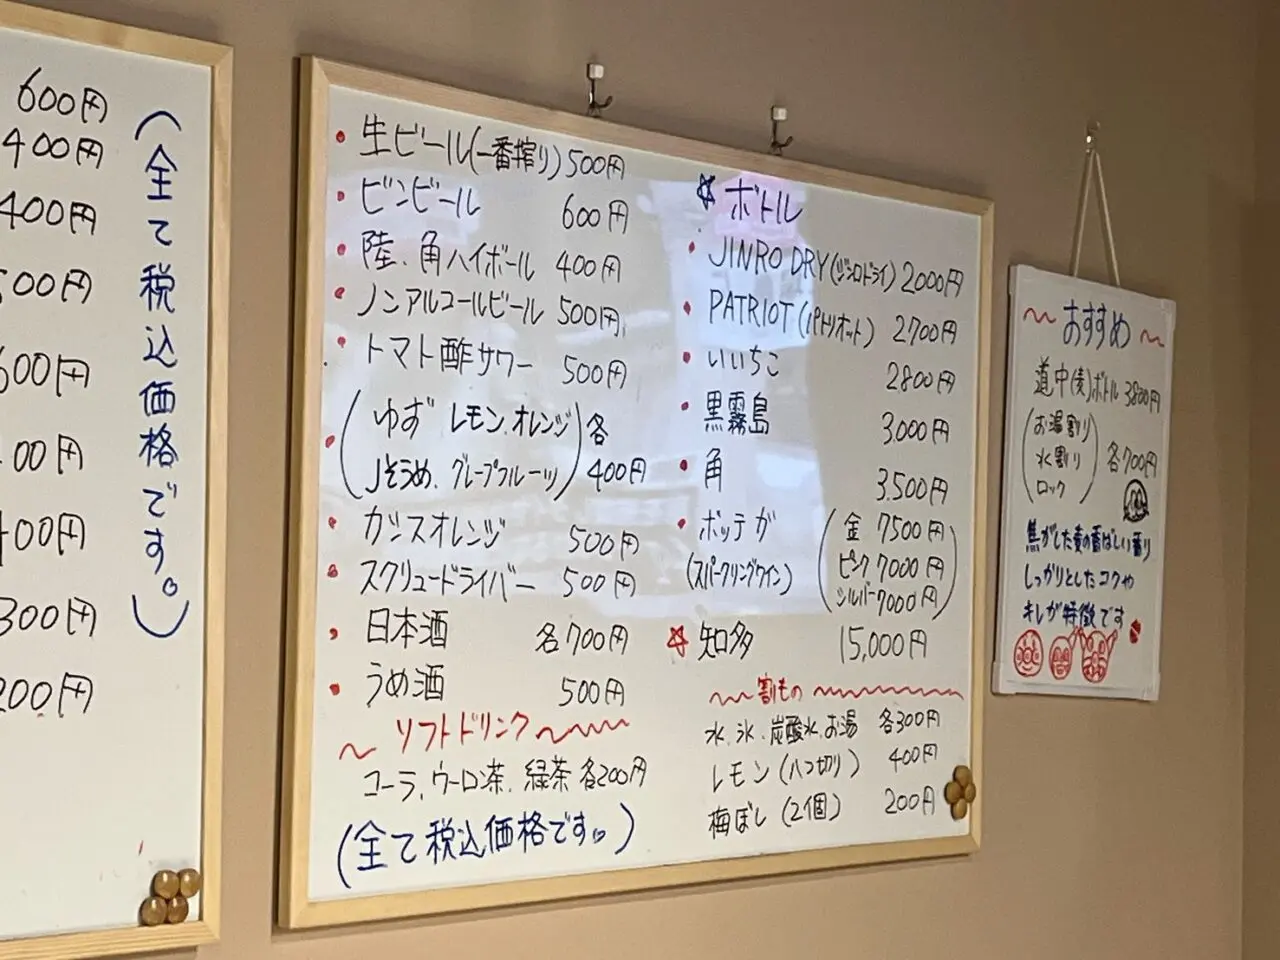 600円
400円
400円
500円
600円
400円
400円
300円
200円
(全て税込価格です。)
・生ビール(一番搾り) 500円
・ビンビール 600円
・陸、角ハイボール 400円
・ノンアルコールビール 500円
・トマト酢サワー 500円
・(ゆず レモン、オレンジ
Jそうめ、グレープフルーツ) 各400円
・カシスオレンジ 500円
・スクリュードライバー 500円
・日本酒 各700円
・うめ酒 500円
〜ソフトドリンク〜
コーラ、ウーロン茶、緑茶 各200円
(全て税込価格です。)
☆ボトル
・JINRO DRY(ジンロドライ) 2000円
・PATRIOT(パトリオット) 2700円
・いいちこ 2800円
・黒霧島 3,000円
・角 3,500円
・ボッテガ (金 7500円
(スパークリングワイン) ピンク 7000円
シルバー7000円)
☆知多 15,000円
〜割もの〜
水、氷、炭酸水、お湯 各300円
レモン(八つ切り) 400円
梅ぼし(2個) 200円
〜おすすめ〜
道中(麦)ボトル 3800円
(お湯割り
水割り
ロック) 各700円
焦がした麦の香ばしい香り
しっかりとしたコクや
キレが特徴です